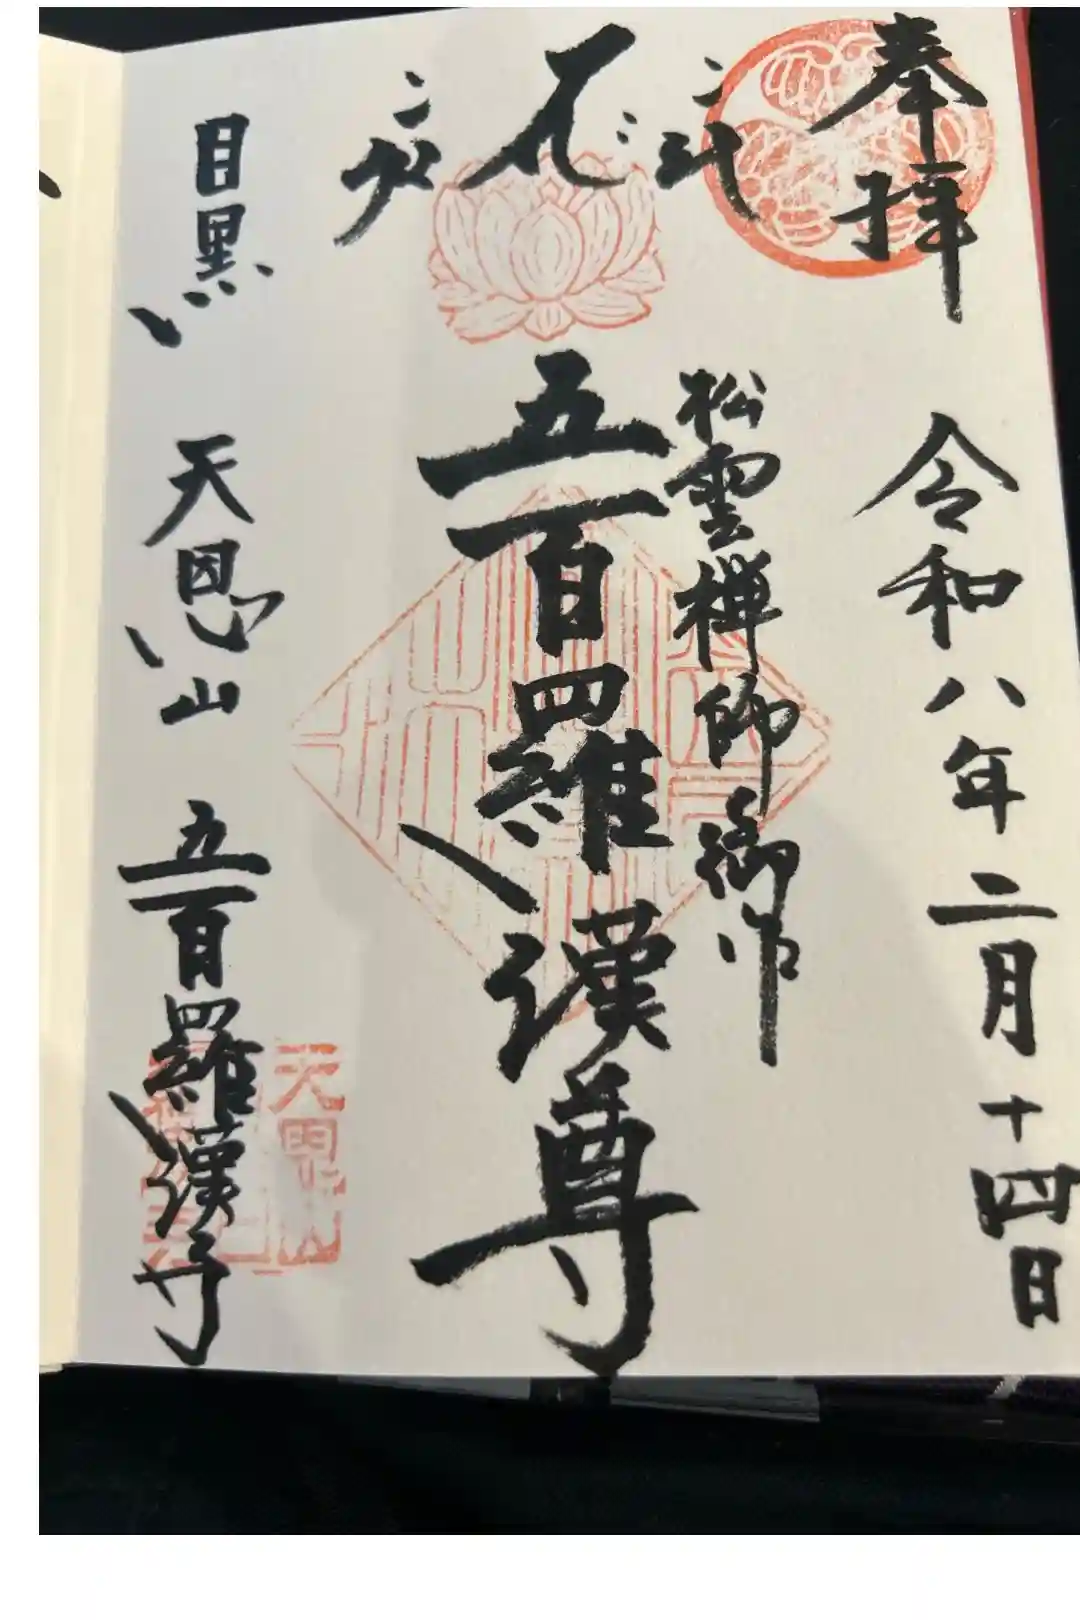 奉拝
令和八年二月十四日
松雲禅師御作
五百羅漢尊
目黒
天恩山
五百羅漢寺
天恩山